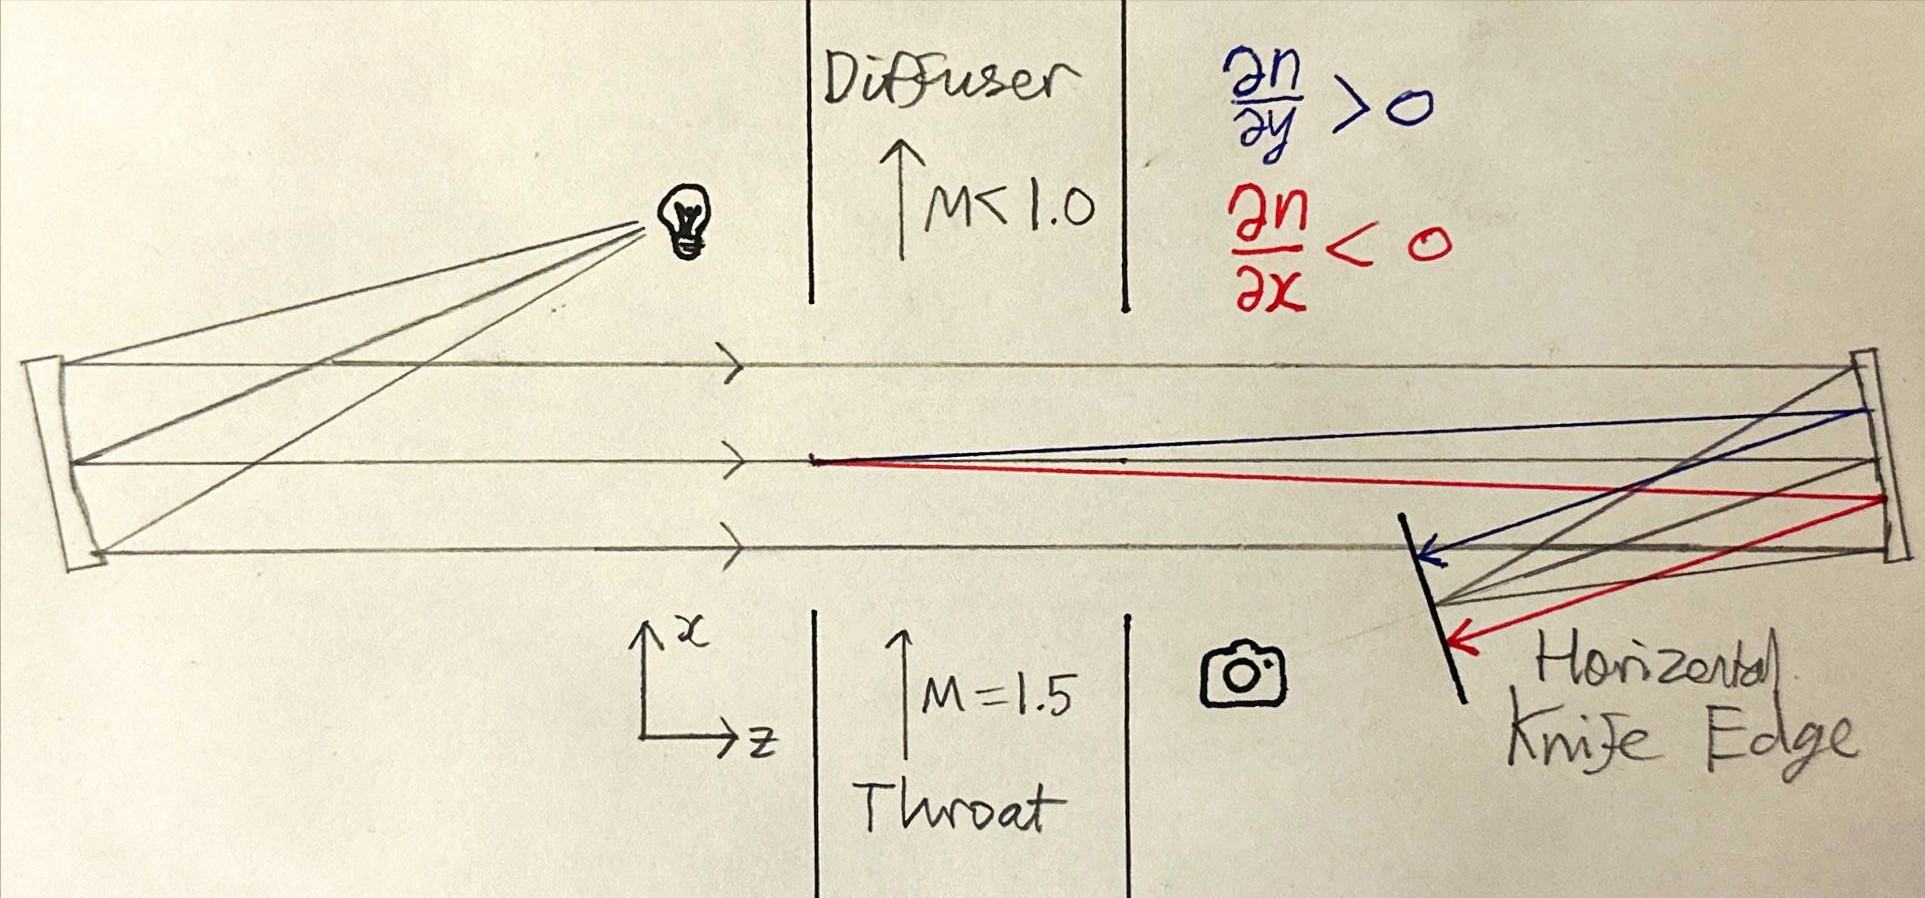 Diffuser
M < 1.0
∂n/∂y > 0
∂n/∂x < 0
x
z
M = 1.5
Throat
Horizontal
Knife Edge